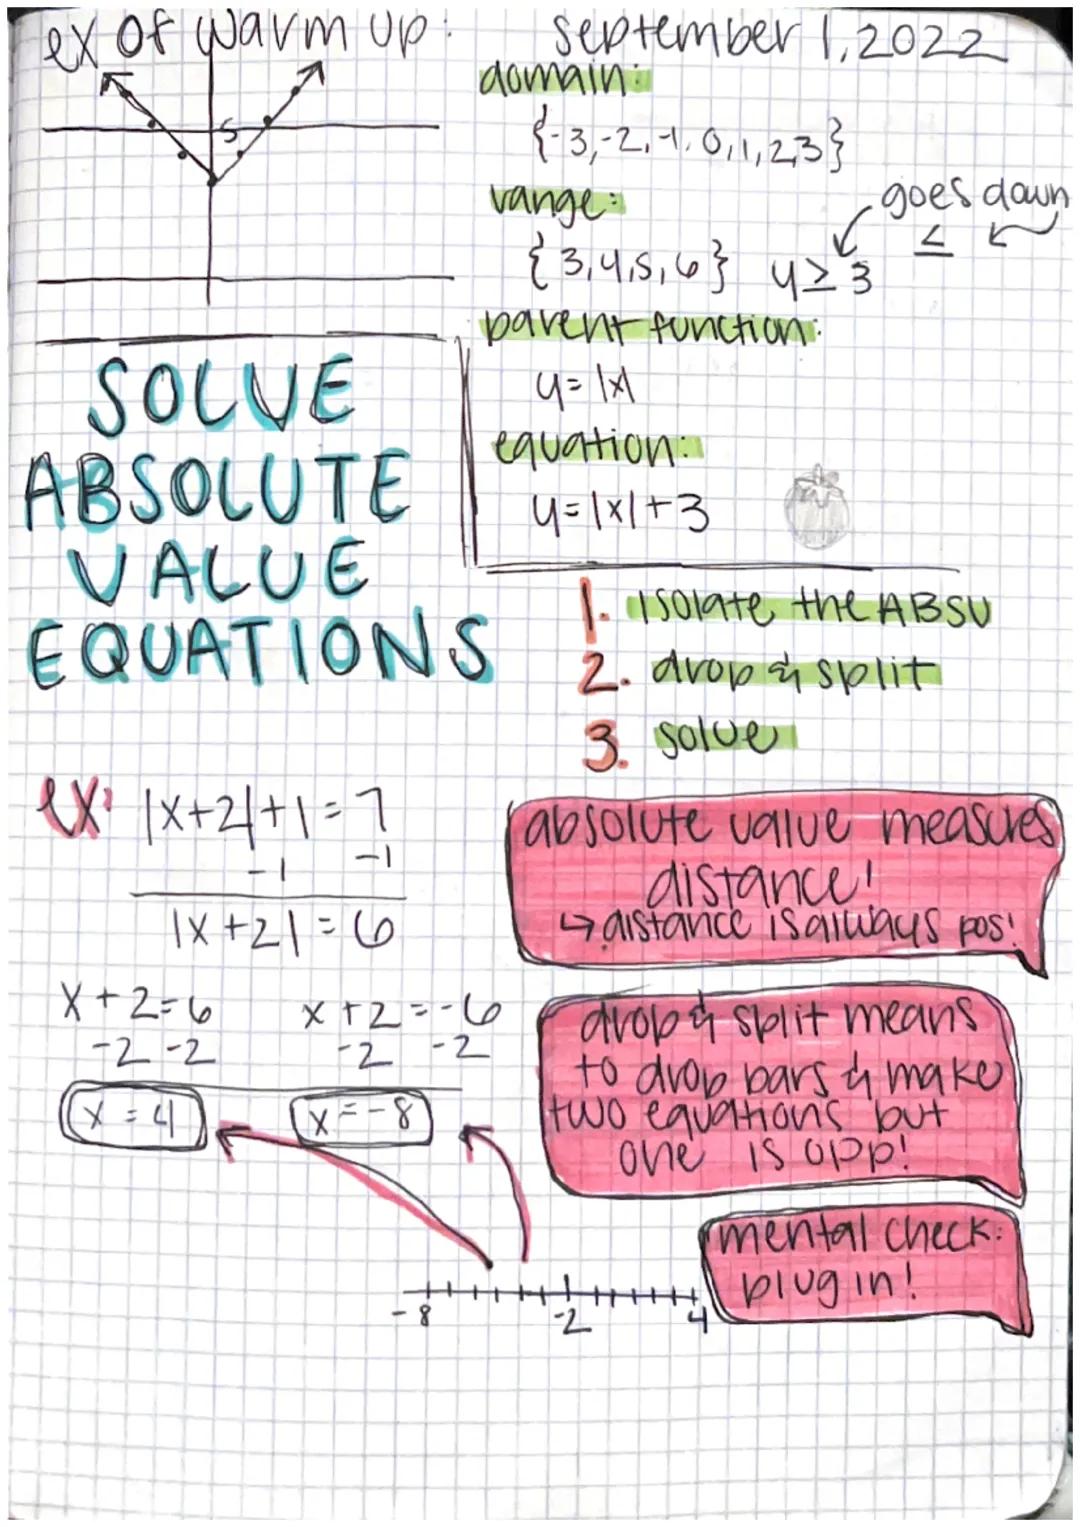 ex of warm up:
september 1, 2022
5
domain:
{-3,-2,-1,0,1,2,3}
range:
{3,4,5,6} y≥3
goes down
≤
parent function:
y=|x|
equation:
y=|x|+3
SOLVE
ABSOLUTE
VALUE
EQUATIONS
1. isolate the ABSV
2. drop & split
3. solve
ex: |x+2|+1=7
-1 -1
|x+2|=6
x+2=6 x+2=-6
-2 -2 -2 -2
x=4 x=-8
-8 -2 4
absolute value measures
distance!
↳ distance is always pos!
drop & split means
to drop bars & make
two equations but
one is opp!
mental check:
plug in!